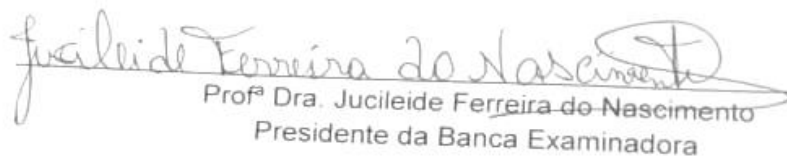 Jucileide Ferreira do Nascimento
Profª Dra. Jucileide Ferreira do Nascimento
Presidente da Banca Examinadora